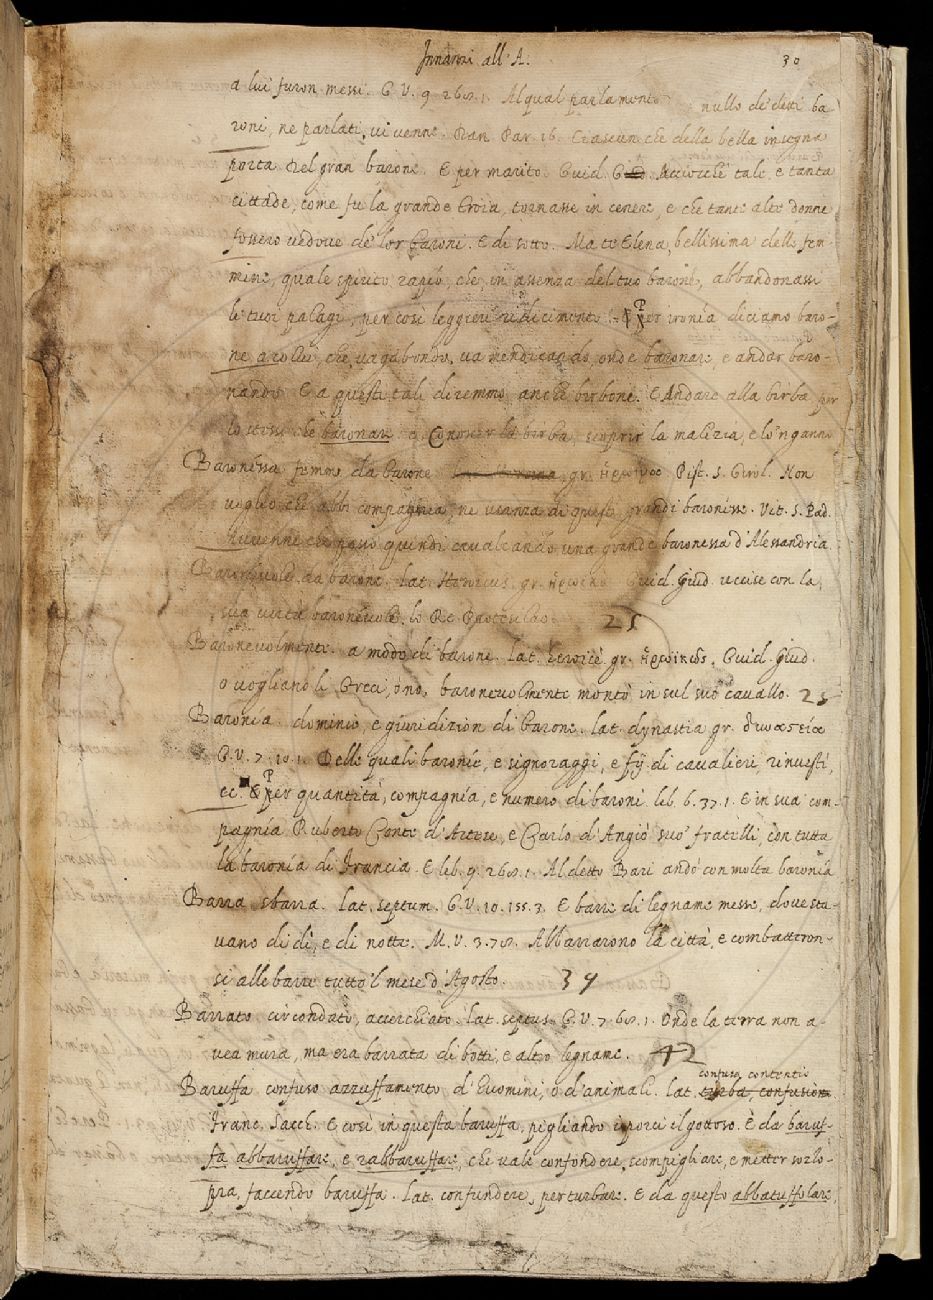 Innanzi all'A. 30
a lui furon messi. G.V. 9. 268. 1. Al qual parlamento nullo de' detti ba
roni, ne parlati, vi venne. Dan. Par. 16. Ciascun che della bella insegna
porta del gran barone. E per marito. Guid. G. Acciocchè tale, e tanta
cittade, come fu la grande Troia, tornasse in cenere, e che tante alte donne
fossero vedove de' lor baroni. E di sotto. Ma tu Elena, bellissima delle fem-
mine, quale spirito rapìo, che, in assenza del tuo barone, abbandonassi
li tuoi palagi, per così leggieri ¶ Per ironía diciamo baro-
ne a colui, che vagabondo, va mendicando, onde baronare, e andar baro-
nando. E a questi tali diremmo anche birboni. E Andare alla birba per
lo stesso che baronare e Conoscer la birba, scoprir la malizia, e lo 'nganno
Baronessa femm. da barone gr. ἡρωίνος Pist. S. Girol. Non
voglio che abbi compagnia, ne usanza di queste grandi baronesse. Vit. S. Pad.
Avvenne che passò quindi cavalcando una grande baronessa d'Alessandria.
Baronévole. da barone. Lat. Heroicus. gr. Guid. Giud. uccise con la
sua virtù baronévole. lo Re Protesilao. 25
Baronevolmente. a modo di barone. Lat. heroicè gr. ἡρωικῶς. Guid. Giud.
o vogliano li Greci, ono, baronevolmente montò in sul suo cavallo. 25
Baronía dominio, e giuridizion di barone. Lat. dynastia gr. δυναστεία
G.V. 7. 10. 1. Delle quali baroníe, e signoraggi, e fij di cavalieri, rinvestì,
ec. ¶ Per quantità, compagnía, e numero di baroni. lib. 6. 37. 1. E in sua com-
pagnía Ruberto Conte d'Artese, e Carlo d'Angiò suo' fratelli, con tutta
la baronía di Francia. E lib. 9. 268. 1. Al detto Bari andò con molta baronía
Barra sbarra. Lat. septum. G.V. 10. 155. 3. E barre di legname messe, dove sta-
vano di dì, e di notte. M.V. 3. 78. Abbarrarono la città, e combatteron-
si alle barre tutto 'l mese d'Agosto. 39
Barrato circondato, accerchiato. Lat. septus. G.V. 7. 68. 1. Onde la terra non a-
vea mura, ma era barrata di botti, e altro legname. 42
confusa contentio
Baruffa confuso azzuffamento d'huomini, o d'animali. Lat. turba, confusion.
Franc. Sacch. E così in questa baruffa, pigliando i porci il gottoso. È da baruf-
fa abbaruffare, e rabbaruffare, che vale confondere, scompigliare, e metter sozlo-
pra, facendo baruffa. Lat. confundere, perturbare. E da questo abbatuffolare,